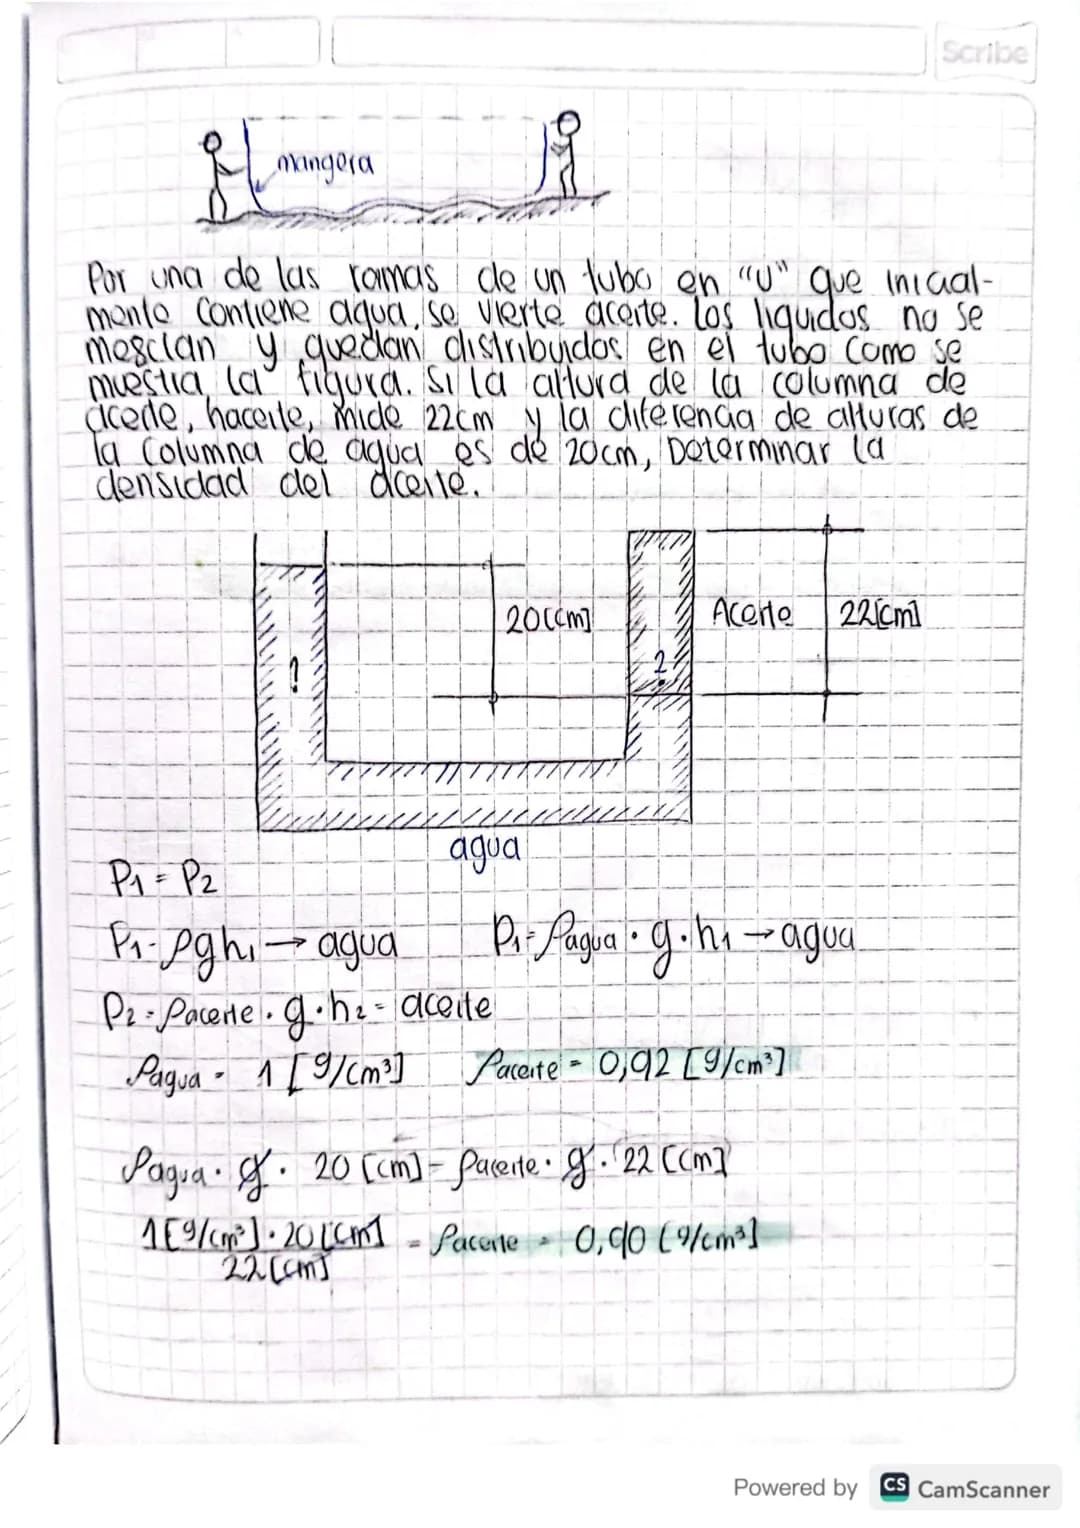 Scribe
mangera
Por una de las ramas de un tubo en "U" que inicial-
mente contiene agua, se vierte aceite. Los liquidos no se
mesclan y quedan distribuidos en el tubo como se
muestra la figura. Si la altura de la columna de
aceite, haceite, mide 22cm y la diferencia de alturas de
la columna de agua es de 20cm, Determinar la
densidad del aceite.
20[cm]
Aceite
22[cm]
1
2
agua
P1 = P2
P1 - ρgh1 → agua
P1 = ρagua · g · h1 → agua
P2 = ρaceite · g · h2 = aceite
ρagua = 1 [g/cm³]
ρaceite = 0,92 [g/cm³]
ρagua · g · 20 [cm] = ρaceite · g · 22 [cm]
1[g/cm³] · 20[cm] = ρaceite = 0,90 [g/cm³]
22[cm]
Powered by CS CamScanner